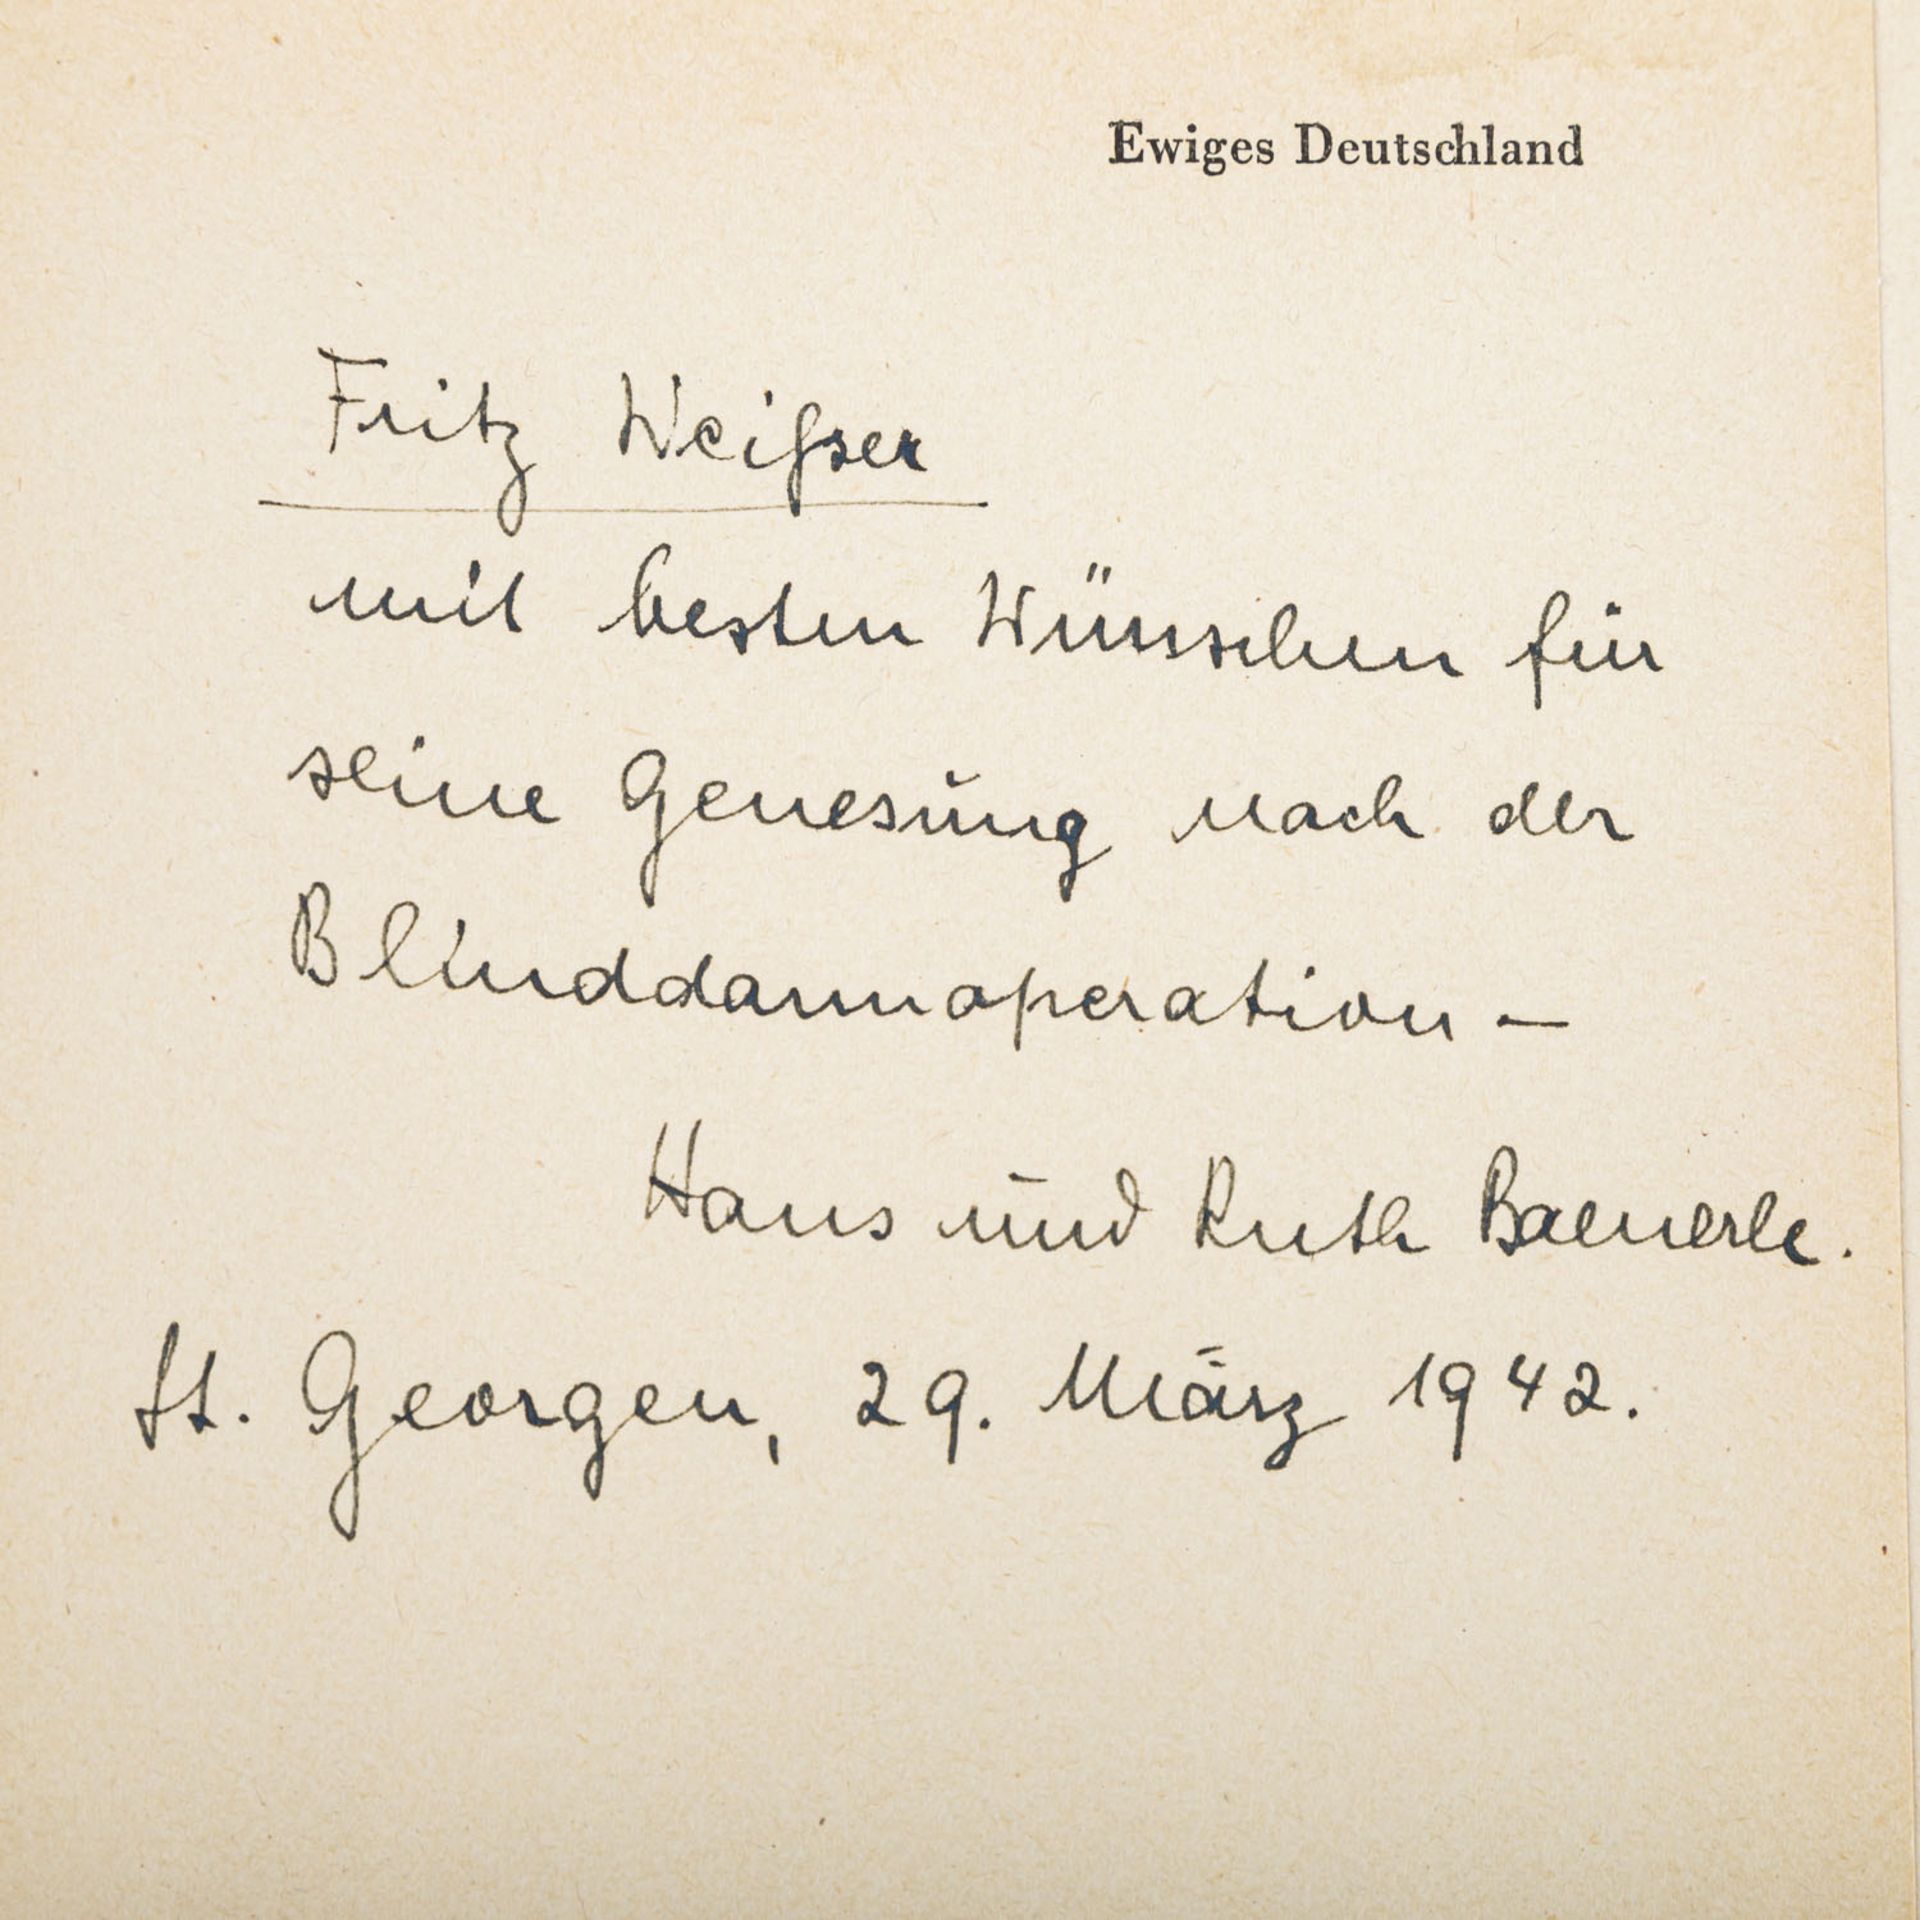 Ewiges Deutschland
Fritz Weißer
mit besten Wünschen für
seine Genesung nach der
Blinddarmoperation –
Hans und Ruth Baeuerle.
St. Georgen, 29. März 1942.